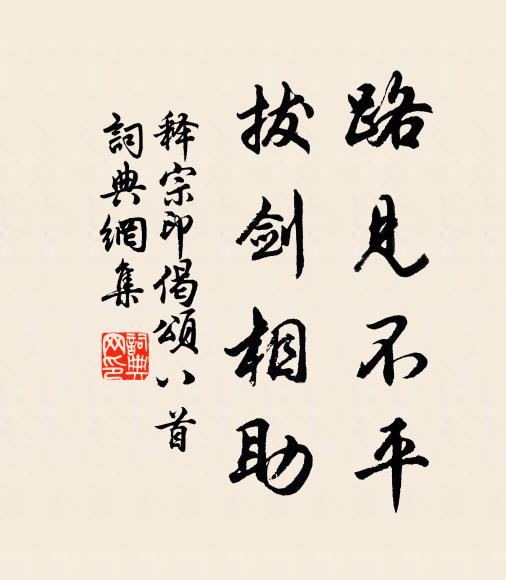 路见不平
拔剑相助
释宗印偈颂八首
詞典網集
詞典
网印